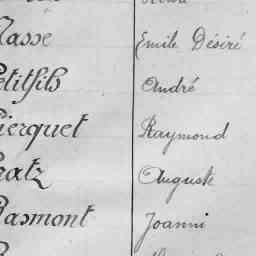 Masse Emile Désiré
Petitfils André
Pierquet Raymond
Pratz Auguste
Rasmont Joanni